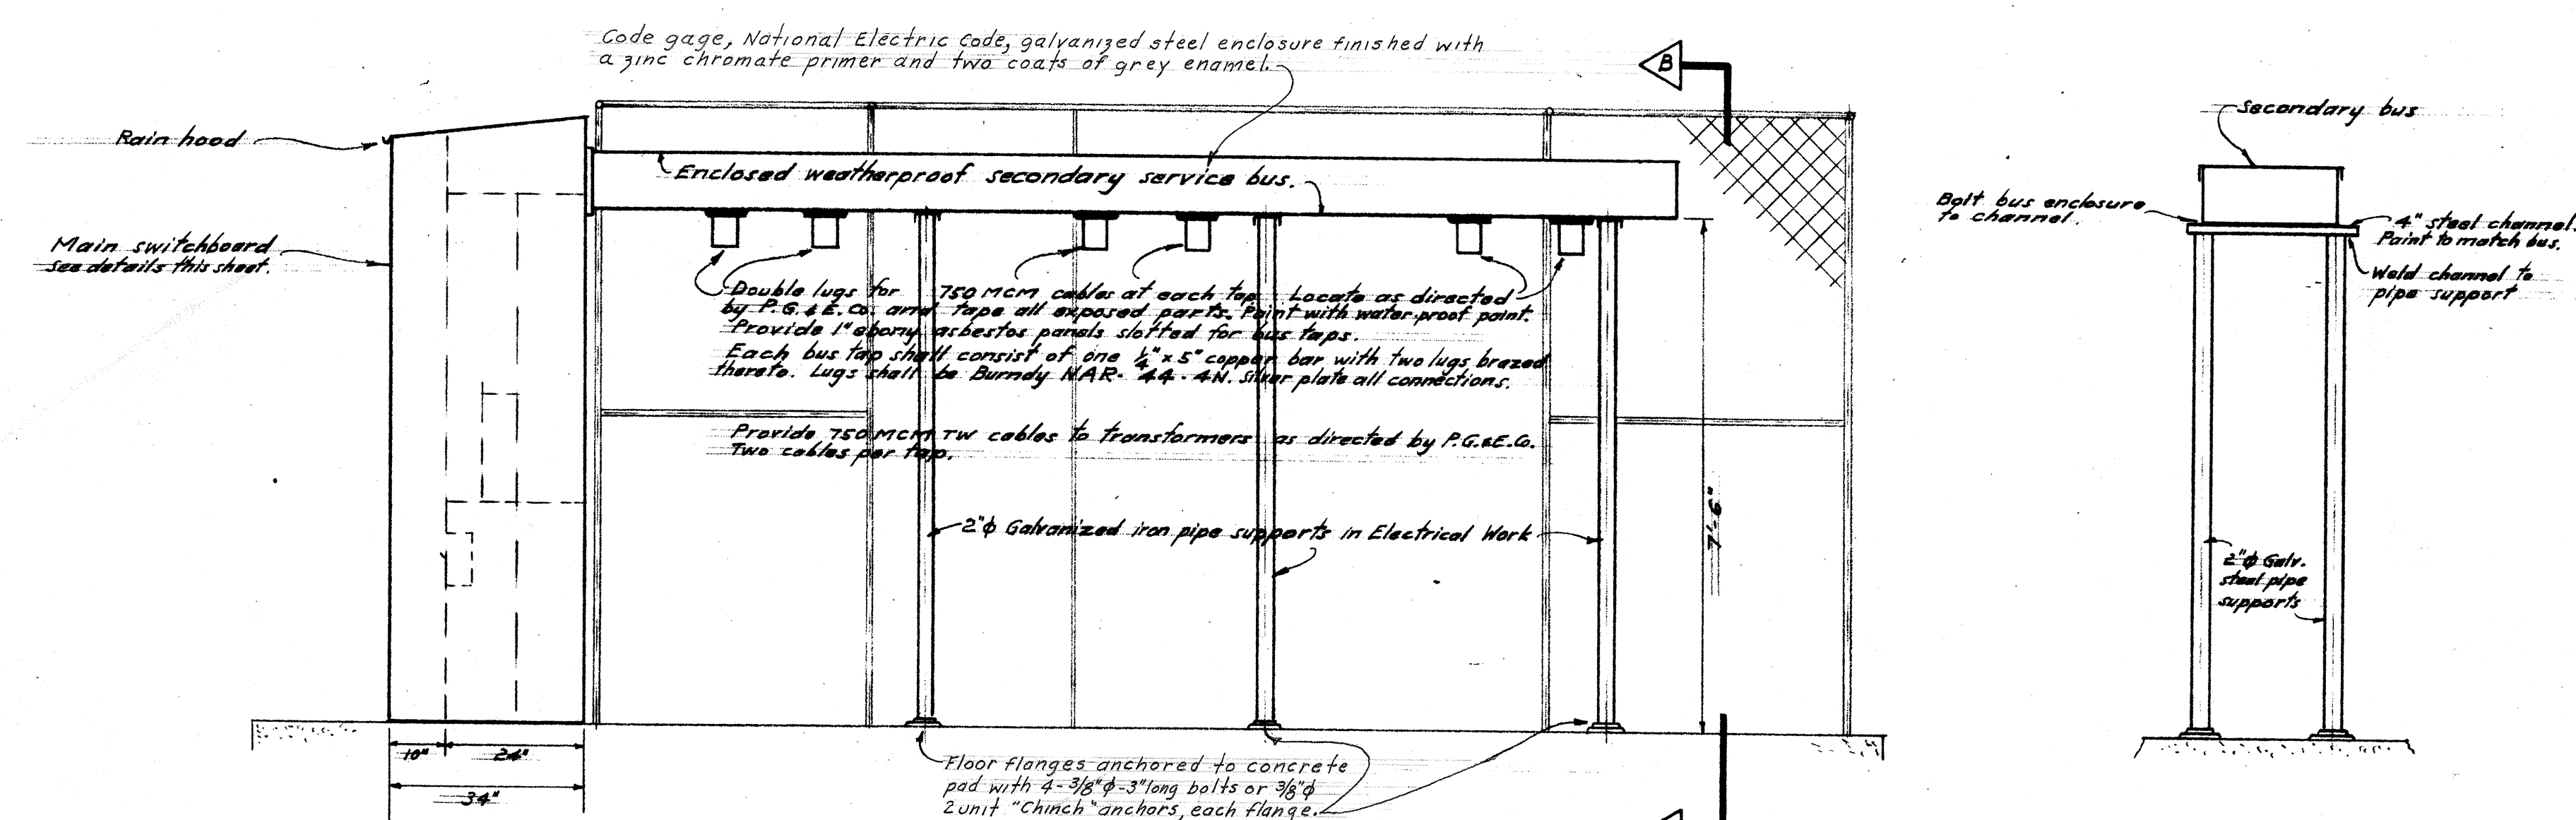 Code gage, National Electric Code, galvanized steel enclosure finished with
a zinc chromate primer and two coats of grey enamel.
B
Rain hood
Enclosed weatherproof secondary service bus.
Main switchboard
see details this sheet.
Double lugs for 750 MCM cables at each tap. Locate as directed
by P.G.&E.Co. and tape all exposed parts. Paint with water proof paint.
Provide 1" ebony asbestos panels slotted for bus taps.
Each bus tap shall consist of one 1/4" x 5" copper bar with two lugs brazed
thereto. Lugs shall be Burndy NAR- 44 - 4N. Silver plate all connections.
Provide 750 MCM TW cables to transformers as directed by P.G.&E.Co.
Two cables per tap.
2"ϕ Galvanized iron pipe supports in Electrical Work
7'-6"
10"
24"
34"
Floor flanges anchored to concrete
pad with 4-3/8"ϕ-3"long bolts or 3/8"ϕ
2 unit "Chinch" anchors, each flange.
Secondary bus
Bolt bus enclosure
to channel.
4" steel channel.
Paint to match bus.
Weld channel to
pipe support
2"ϕ Galv.
steel pipe
supports